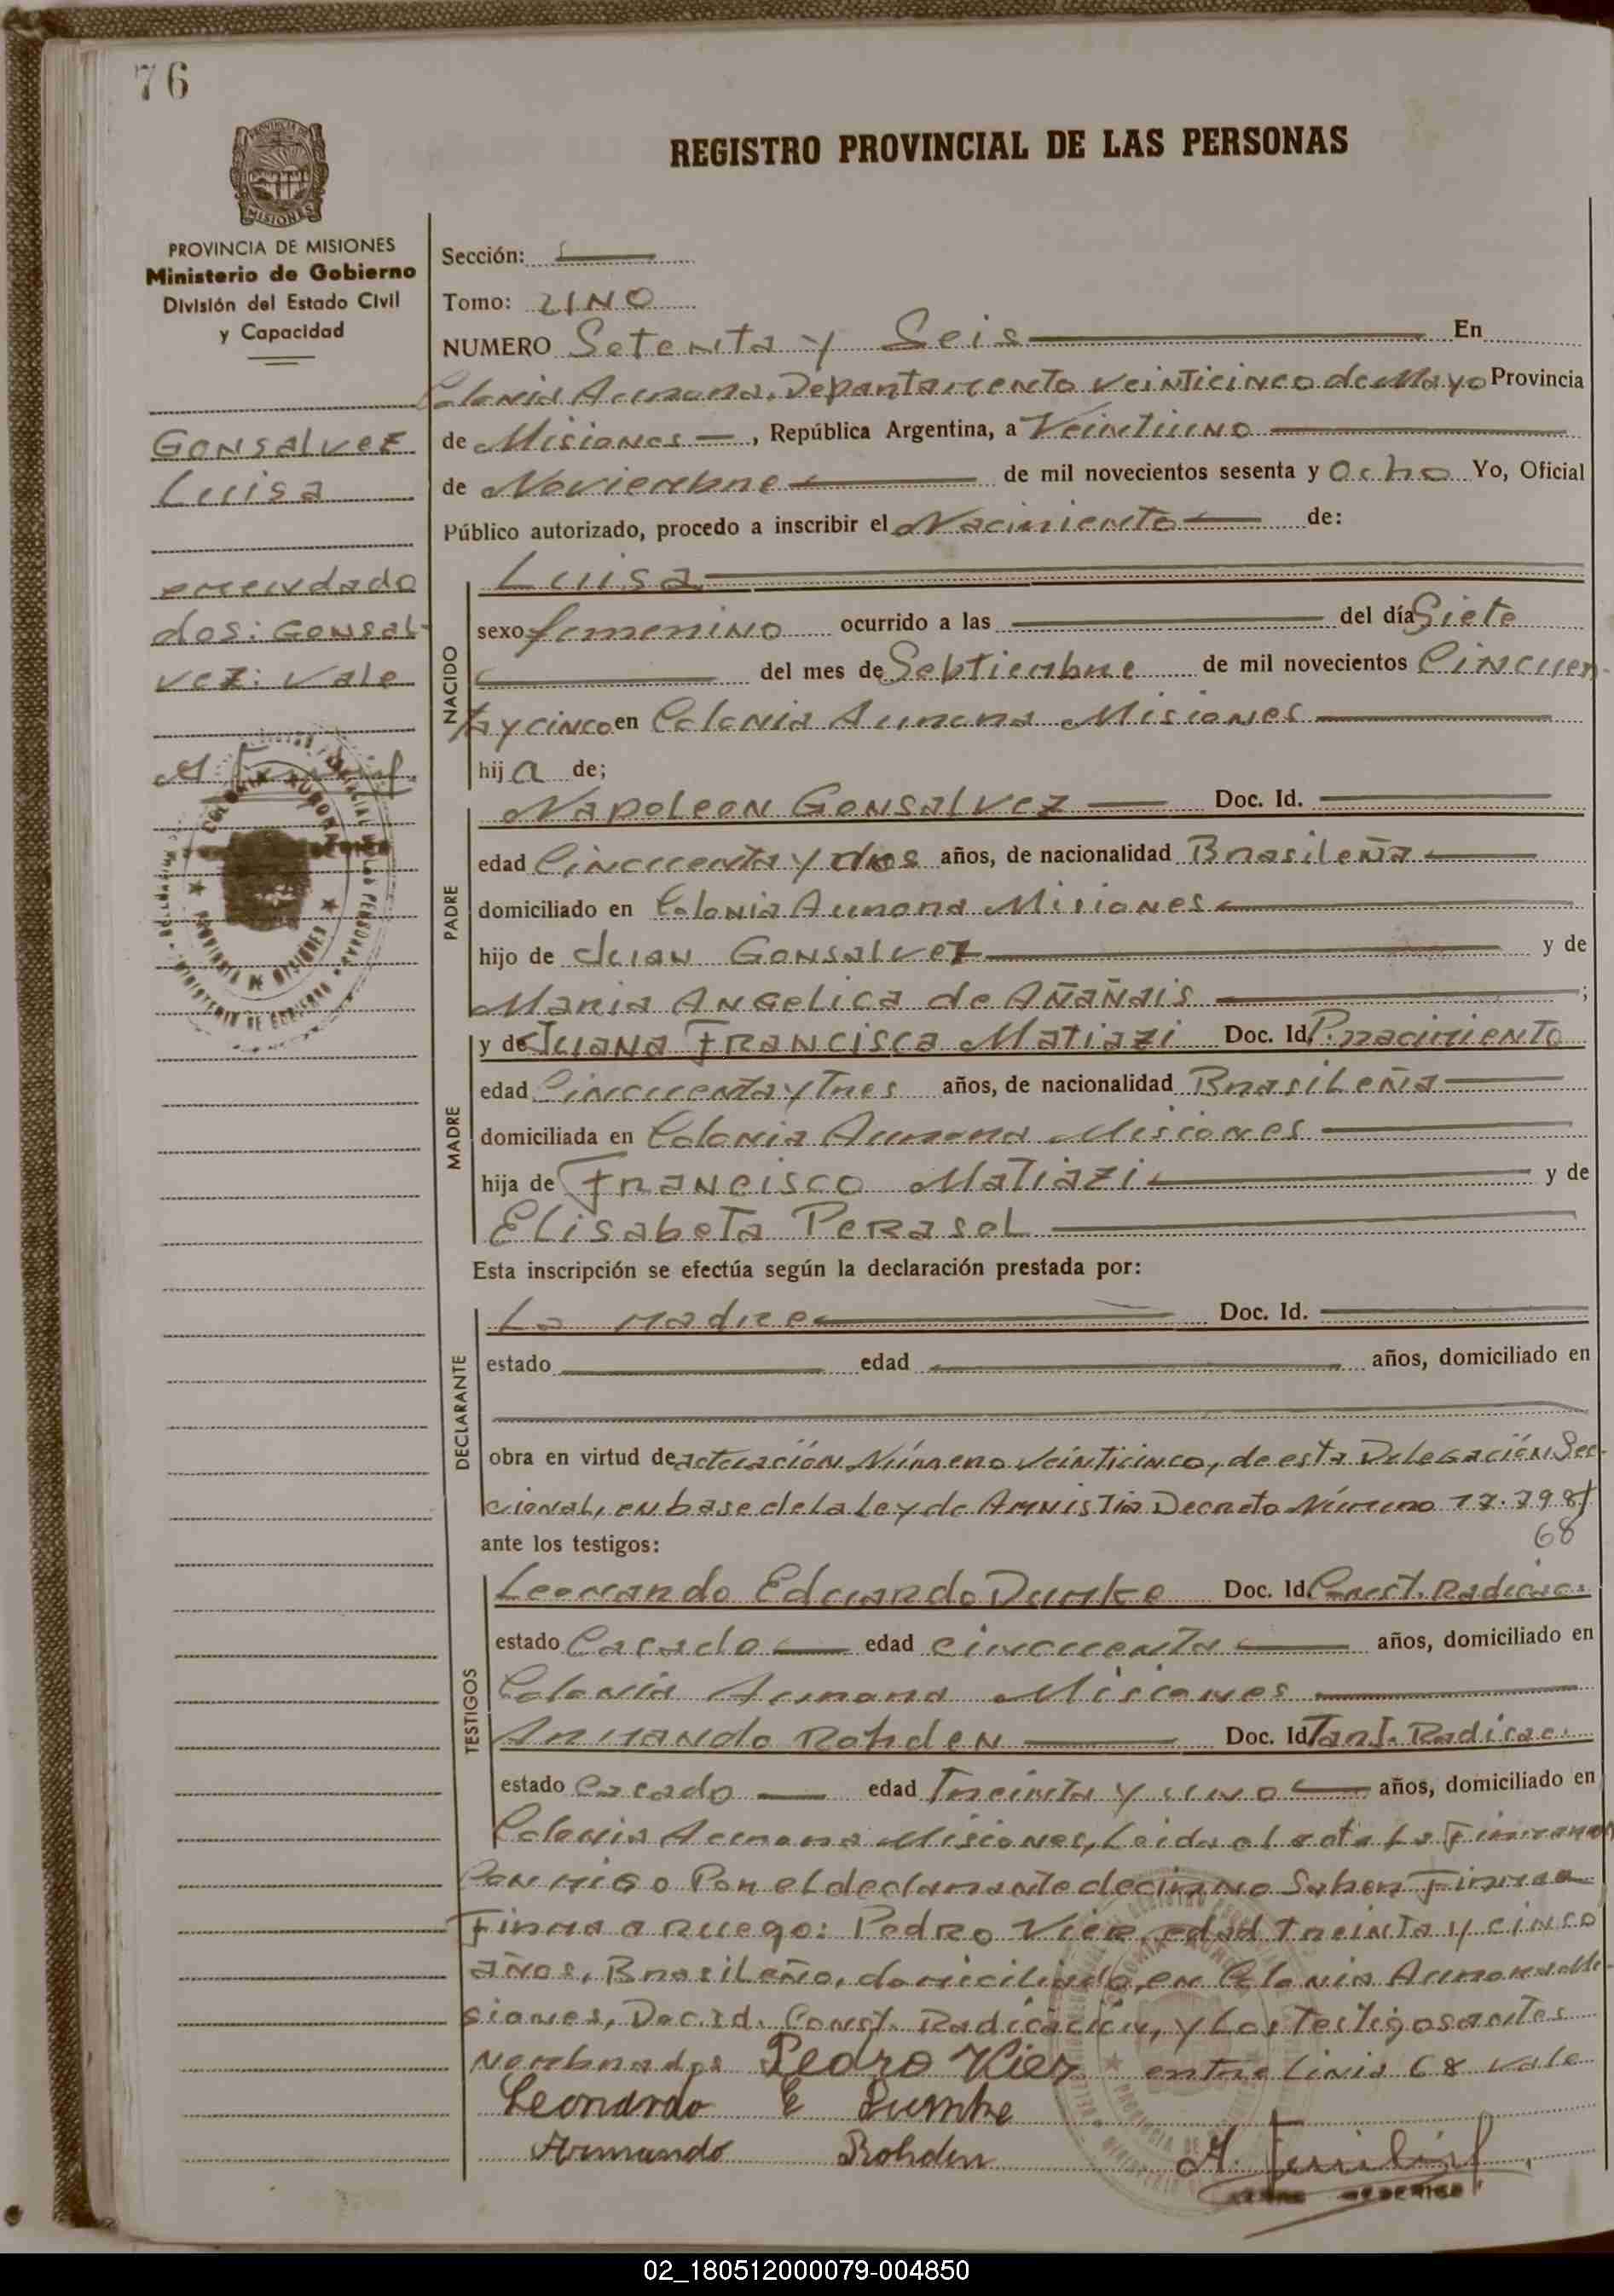 76
REGISTRO PROVINCIAL DE LAS PERSONAS
PROVINCIA DE MISIONES
Ministerio de Gobierno
División del Estado Civil
y Capacidad
Gonsalvez
Luisa
enmendado
dos: Gonsal-
vez: Vale
Sección:
Tomo: UNO
NUMERO Setenta y Seis En
Colonia Aurora, Departamento Veinticinco de Mayo Provincia
de Misiones, República Argentina, a Veintiuno
de Noviembre de mil novecientos sesenta y Ocho Yo, Oficial
Público autorizado, procedo a inscribir el Nacimiento de:
NACIDO
Luisa
sexo femenino ocurrido a las del día Siete
del mes de Septiembre de mil novecientos Cincuen-
ta y cinco en Colonia Aurora Misiones
hija de;
PADRE
Napoleon Gonsalvez Doc. Id.
edad Cincuenta y dos años, de nacionalidad Brasileña
domiciliado en Colonia Aurora Misiones
hijo de Juan Gonsalvez y de
Maria Angelica de Añañais ;
MADRE
y de Juana Francisca Matiazi Doc. Id. P. nacimiento
edad Cincuenta y Tres años, de nacionalidad Brasileña
domiciliada en Colonia Aurora Misiones
hija de Francisco Matiazi y de
Elisabeta Perasol
Esta inscripción se efectúa según la declaración prestada por:
DECLARANTE
La Madre Doc. Id.
estado edad años, domiciliado en
obra en virtud de actuación Número Veinticinco, de esta Delegación Sec-
cional, en base de la Ley de Amnistia Decreto Número 17.798/
68
ante los testigos:
TESTIGOS
Leonardo Eduardo Dumke Doc. Id. Const. Radicac.
estado Casado edad cincuenta años, domiciliado en
Colonia Aurora Misiones
Armando Rohden Doc. Id. Tarj. Radicac.
estado Casado edad Treinta y uno años, domiciliado en
Colonia Aurora Misiones, Leida el acta La Firman
Conmigo Por el declarante decir no Saber Firmar
Firma a Ruego: Pedro Vier, edad Treinta y cinco
años, Brasileño, domiciliado en Colonia Aurora Mi-
siones, Doc. Id. Const. Radicación, y Los Testigos antes
Nombrados Pedro Vier entre linia 68 vale
Leonardo E Dumke
Armando Rohden
02_180512000079-004850